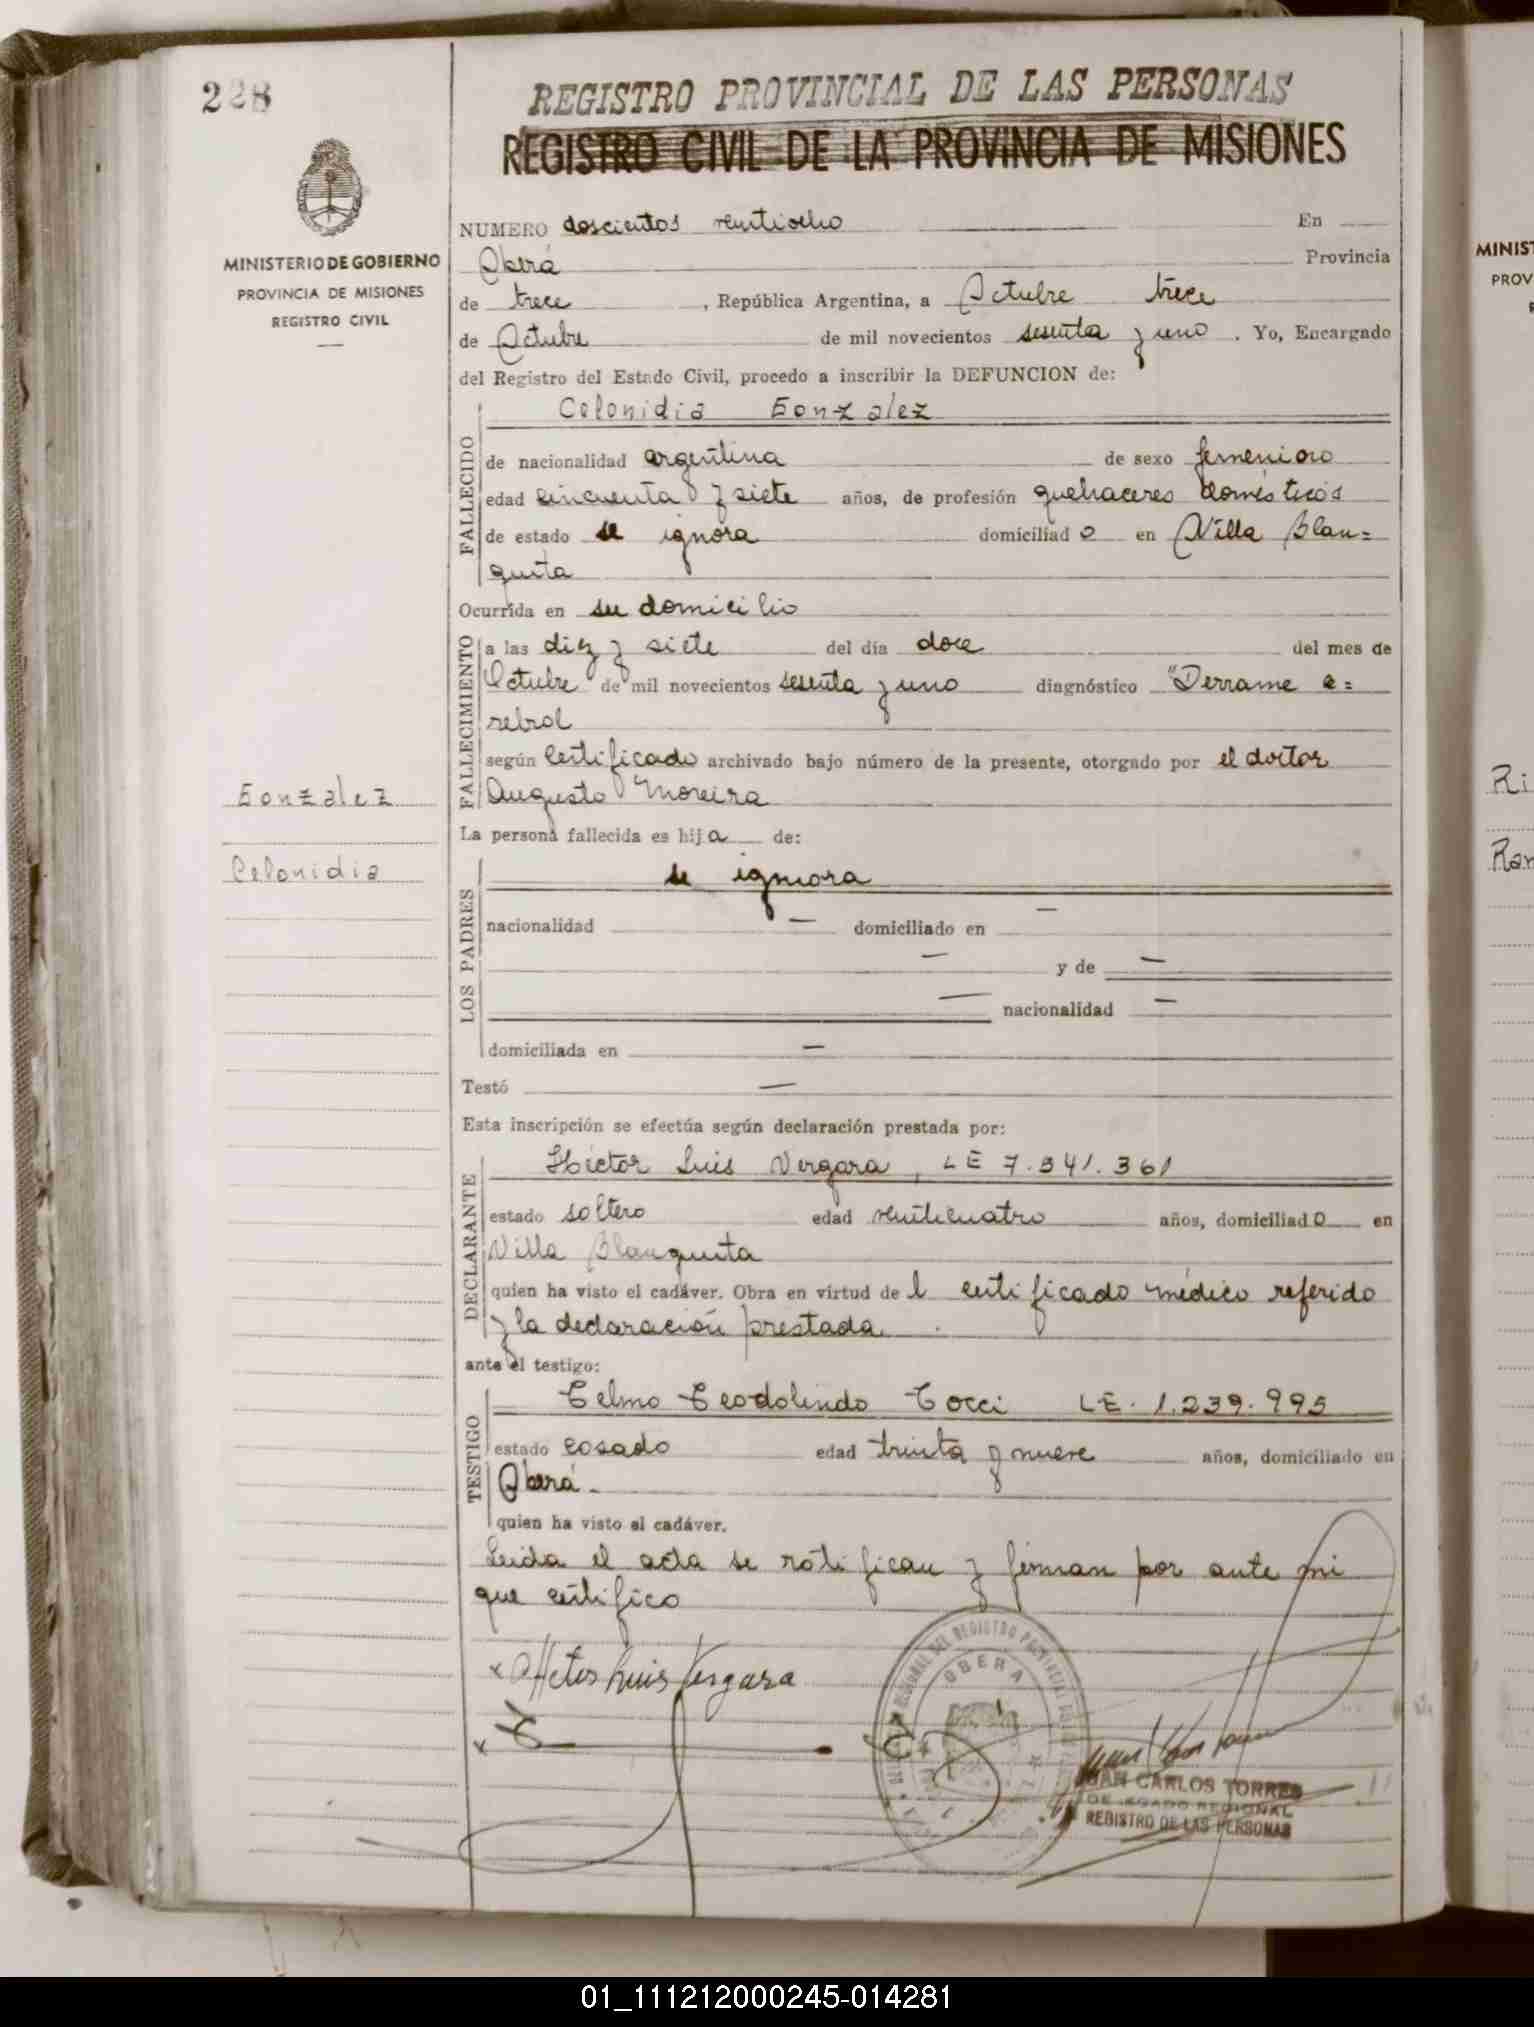 228
REGISTRO PROVINCIAL DE LAS PERSONAS
REGISTRO CIVIL DE LA PROVINCIA DE MISIONES
MINISTERIO DE GOBIERNO
PROVINCIA DE MISIONES
REGISTRO CIVIL
NUMERO doscientos veintiocho En
Oberá Provincia
de trece , República Argentina, a Octubre trece
de Octubre de mil novecientos sesenta y uno . Yo, Encargado
del Registro del Estado Civil, procedo a inscribir la DEFUNCION de:
Celonidia Gonzalez
FALLECIDO
de nacionalidad argentina de sexo femenino
edad cincuenta y siete años, de profesión quehaceres domésticos
de estado se ignora domiciliad o en Villa Blan=
quita
Ocurrida en su domicilio
FALLECIMIENTO
a las diez y siete del día doce del mes de
Octubre de mil novecientos sesenta y uno diagnóstico "Derrame ce=
rebral
según certificado archivado bajo número de la presente, otorgado por el doctor
Augusto Moreira
Gonzalez
Celonidia
La persona fallecida es hij a de:
LOS PADRES
se ignora
nacionalidad — domiciliado en —
— y de —
— nacionalidad —
domiciliada en —
Testó —
Esta inscripción se efectúa según declaración prestada por:
DECLARANTE
Héctor Luis Vergara, LE 7.541.361
estado soltero edad veinticuatro años, domiciliad o en
Villa Blanquita
quien ha visto el cadáver. Obra en virtud de l certificado médico referido
y la declaración prestada.
ante el testigo:
TESTIGO
Telmo Teodolindo Tocci LE. 1.239.995
estado casado edad treinta y nueve años, domiciliado en
Oberá.
quien ha visto el cadáver.
Leída el acta se ratifican y firman por ante mi
que certifico
x Hector Luis Vergara
x
OBERA
JUAN CARLOS TORRES
DELEGADO REGIONAL
REGISTRO DE LAS PERSONAS
MINIST
PROV
Ri
Ram
01_111212000245-014281